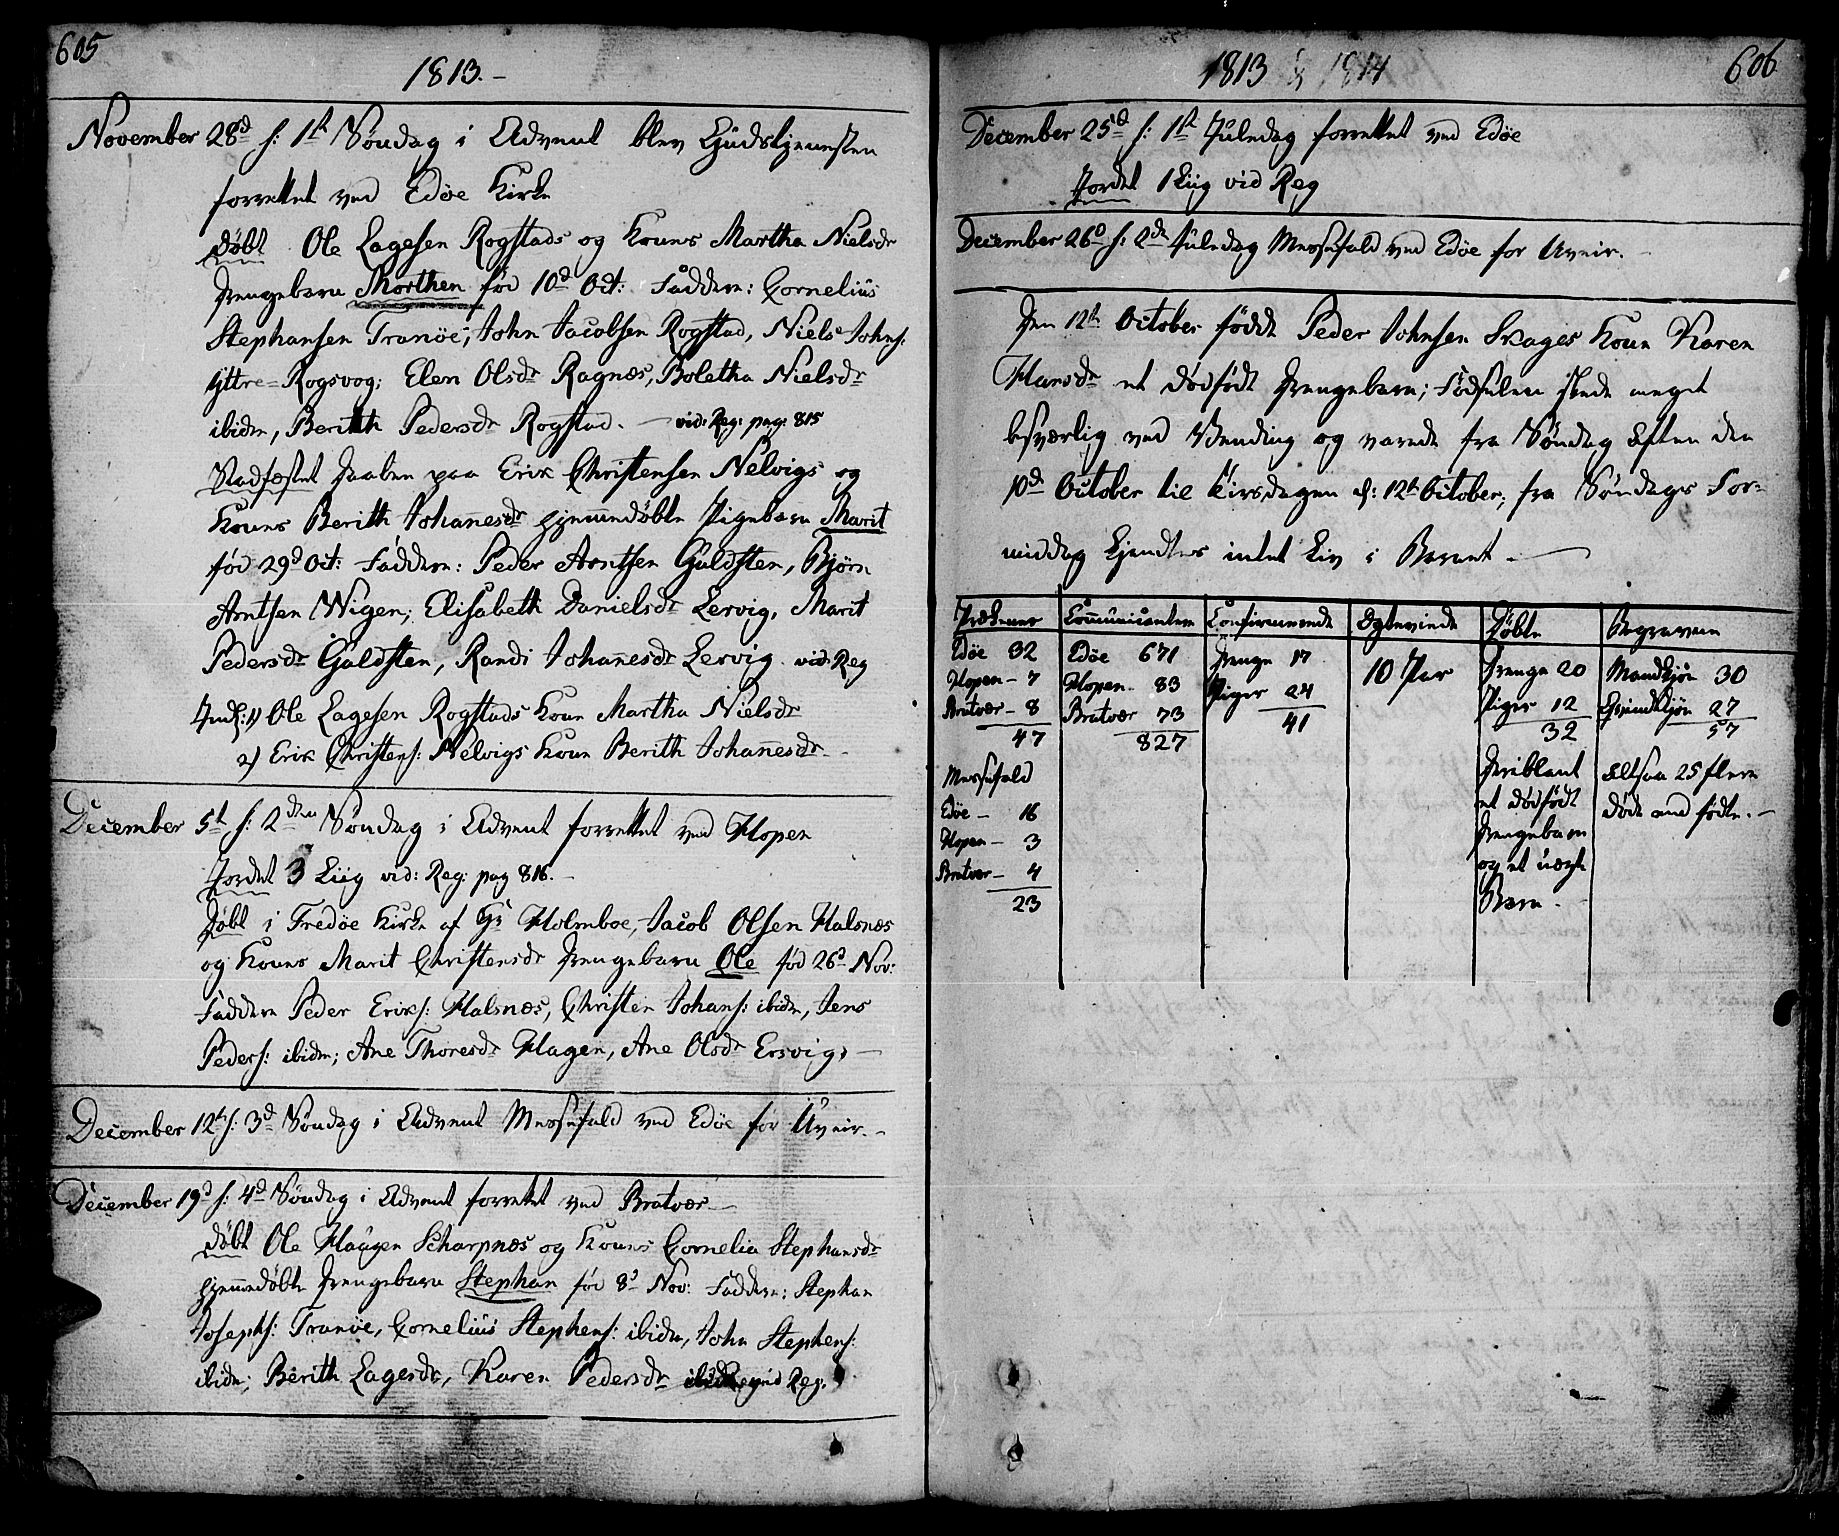 605
1813.-
November 28d s: 1st Søndag i Advent blev Gudstjenesten
forrettet ved Edøe Kirke
Døbt Ole Lagesen Rogstads og Kones Martha Nielsdr
Drengebarn Morthen fød 10d Oct: Faddere: Cornelius
Stephansen Tranøe, John Jacobsen Rogstad, Niels Johns:
Yttre=Rogsvog; Elen Olsdr Ragnæs, Boletha Nielsdr
ibidm, Berith Pedersdr Rogstad. — vid: Reg: pag: 815
Stadfæstet Daaben paa Erik Christensen Nelvigs og
Kones Berith Johannesdr hjemmedøbte Pigebarn Marit
fød 29d Oct: Faddere: Peder Arntsen Guldsten, Bjørn
Arntsen Wigen; Elisabeth Danielsdr Lervig, Marit
Pedersdr Guldsten, Randi Johannesdr Lervig. vid: Reg
Intr: 1) Ole Lagesen Rogstads Kone Martha Nielsdr
2) Erik Christens: Nelvigs Kone Berith Johannesdr.-
December 5t s: 2den Søndag i Advent forrettet ved Hopen
Jordet 3 Liig vid: Reg: pag 816.-
Døbt i Fredøe Kirke af Hr Holmboe, Jacob Olsen Halsnæs
og Kones Marit Christensdr Drengebarn Ole fød 26d Nov:
Faddere Peder Eriks: Halsnæs, Christen Johans: ibidm, Jens
Peders: ibidm; Ane Thoresdr Hagen, Ane Olsdr Ersvig. —
December 12th s: 3d Søndag i Advent Messefald ved Edøe for Uveir.-
December 19d s: 4d Søndag i Advent forrettet ved Bratvær —
Døbt Ole Haagen Scharpnæs og Kones Cornelia Stephansdr
hjemmedøbte Drengebarn Stephan fød 8d Nov: Faddere: Stephan
Josephs: Tranøe, Cornelius Stephens: ibidm, John Stephens:
ibidm; Berith Lagesdr, Karen Pedersdr ibidm, vid Reg.
1813 & 1814
606
December 25d s: 1st Juledag forrettet ved Edøe
Jordet 1 Liig vid Reg
December 26d s: 2de Juledag Messefald ved Edøe for Uveir.
Den 12th October fødte Peder Johnsen Skages Kone Karen
Hansdr et dødfødt Drengebarn; Fødselen skede meget
besværlig ved Vending og varede fra Søndag Aften den
10de October til Tirsdagen d: 12th October; fra Søndags For=
middag kjendtes intet Liv i Barnet. —
Prækener Communicanter Confirmerede Ægteviede Døbte Begravene
Edøe 32 Edøe 671 Drenge 17 10 Par Drenge 20 Mandkjøn 30
Hopen - 7 Hopen - 83 Piger 24 Piger 12 Qvindekjøn 27
Bratvær - 8 Bratvær 73 41 32 57
47 827
Messefald Hvoriblant Altsaa 25 flere
Edøe - 16 et dødfødt døde end fødte. -
Hopen - 3 Drengebarn
Bratvær - 4 og et uægte
23 Barn -